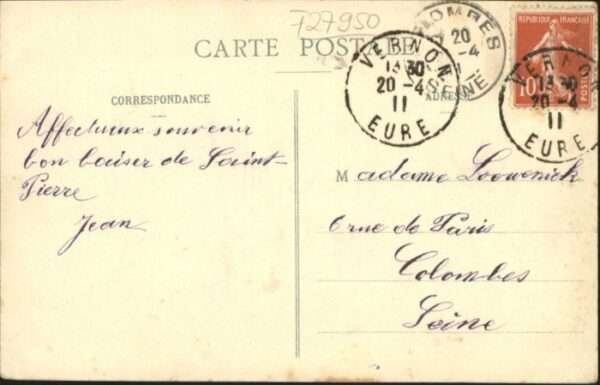 727950
CARTE POSTALE
COLOMBES
20
-4
11
SEINE
VERNON
13 30
20 - 4
11
EURE
REPUBLIQUE FRANÇAISE
10
POSTES
VERNON
13 30
20 - 4
11
EURE
CORRESPONDANCE
ADRESSE
Affectueux souvenir
bon baiser de Saint-
Pierre
Jean
Madame
6 rue de Paris
Colombes
Seine